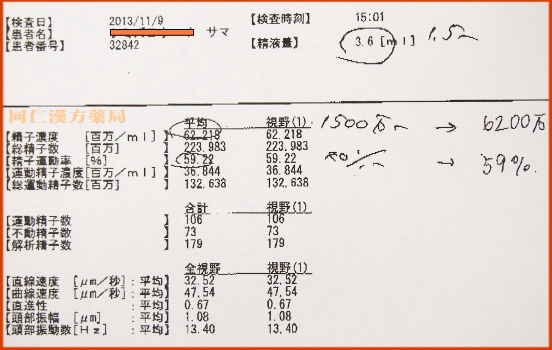 【検査日】 2013/11/9 【検査時刻】 15:01
【患者名】 サマ
【患者番号】 32842 【精液量】 3.6 [ml] 1.5~
同仁漢方薬局
平均 視野(1) 1500万~ → 6200万
【精子濃度 [百万/ml]】 62.218 62.218
【総精子数 [百万]】 223.983 223.983
【精子運動率 [%]】 59.22 59.22 → 59%
【運動精子濃度[百万/ml]】 36.844 36.844
【総運動精子数[百万]】 132.638 132.638
合計 視野(1)
【運動精子数】 106 106
【不動精子数】 73 73
【解析精子数】 179 179
全視野 視野(1)
【直線速度 [μm/秒]:平均】 32.52 32.52
【曲線速度 [μm/秒]:平均】 47.54 47.54
【直進性 :平均】 0.67 0.67
【頭部振幅 [μm] :平均】 1.08 1.08
【頭部振動数[Hz] :平均】 13.40 13.40